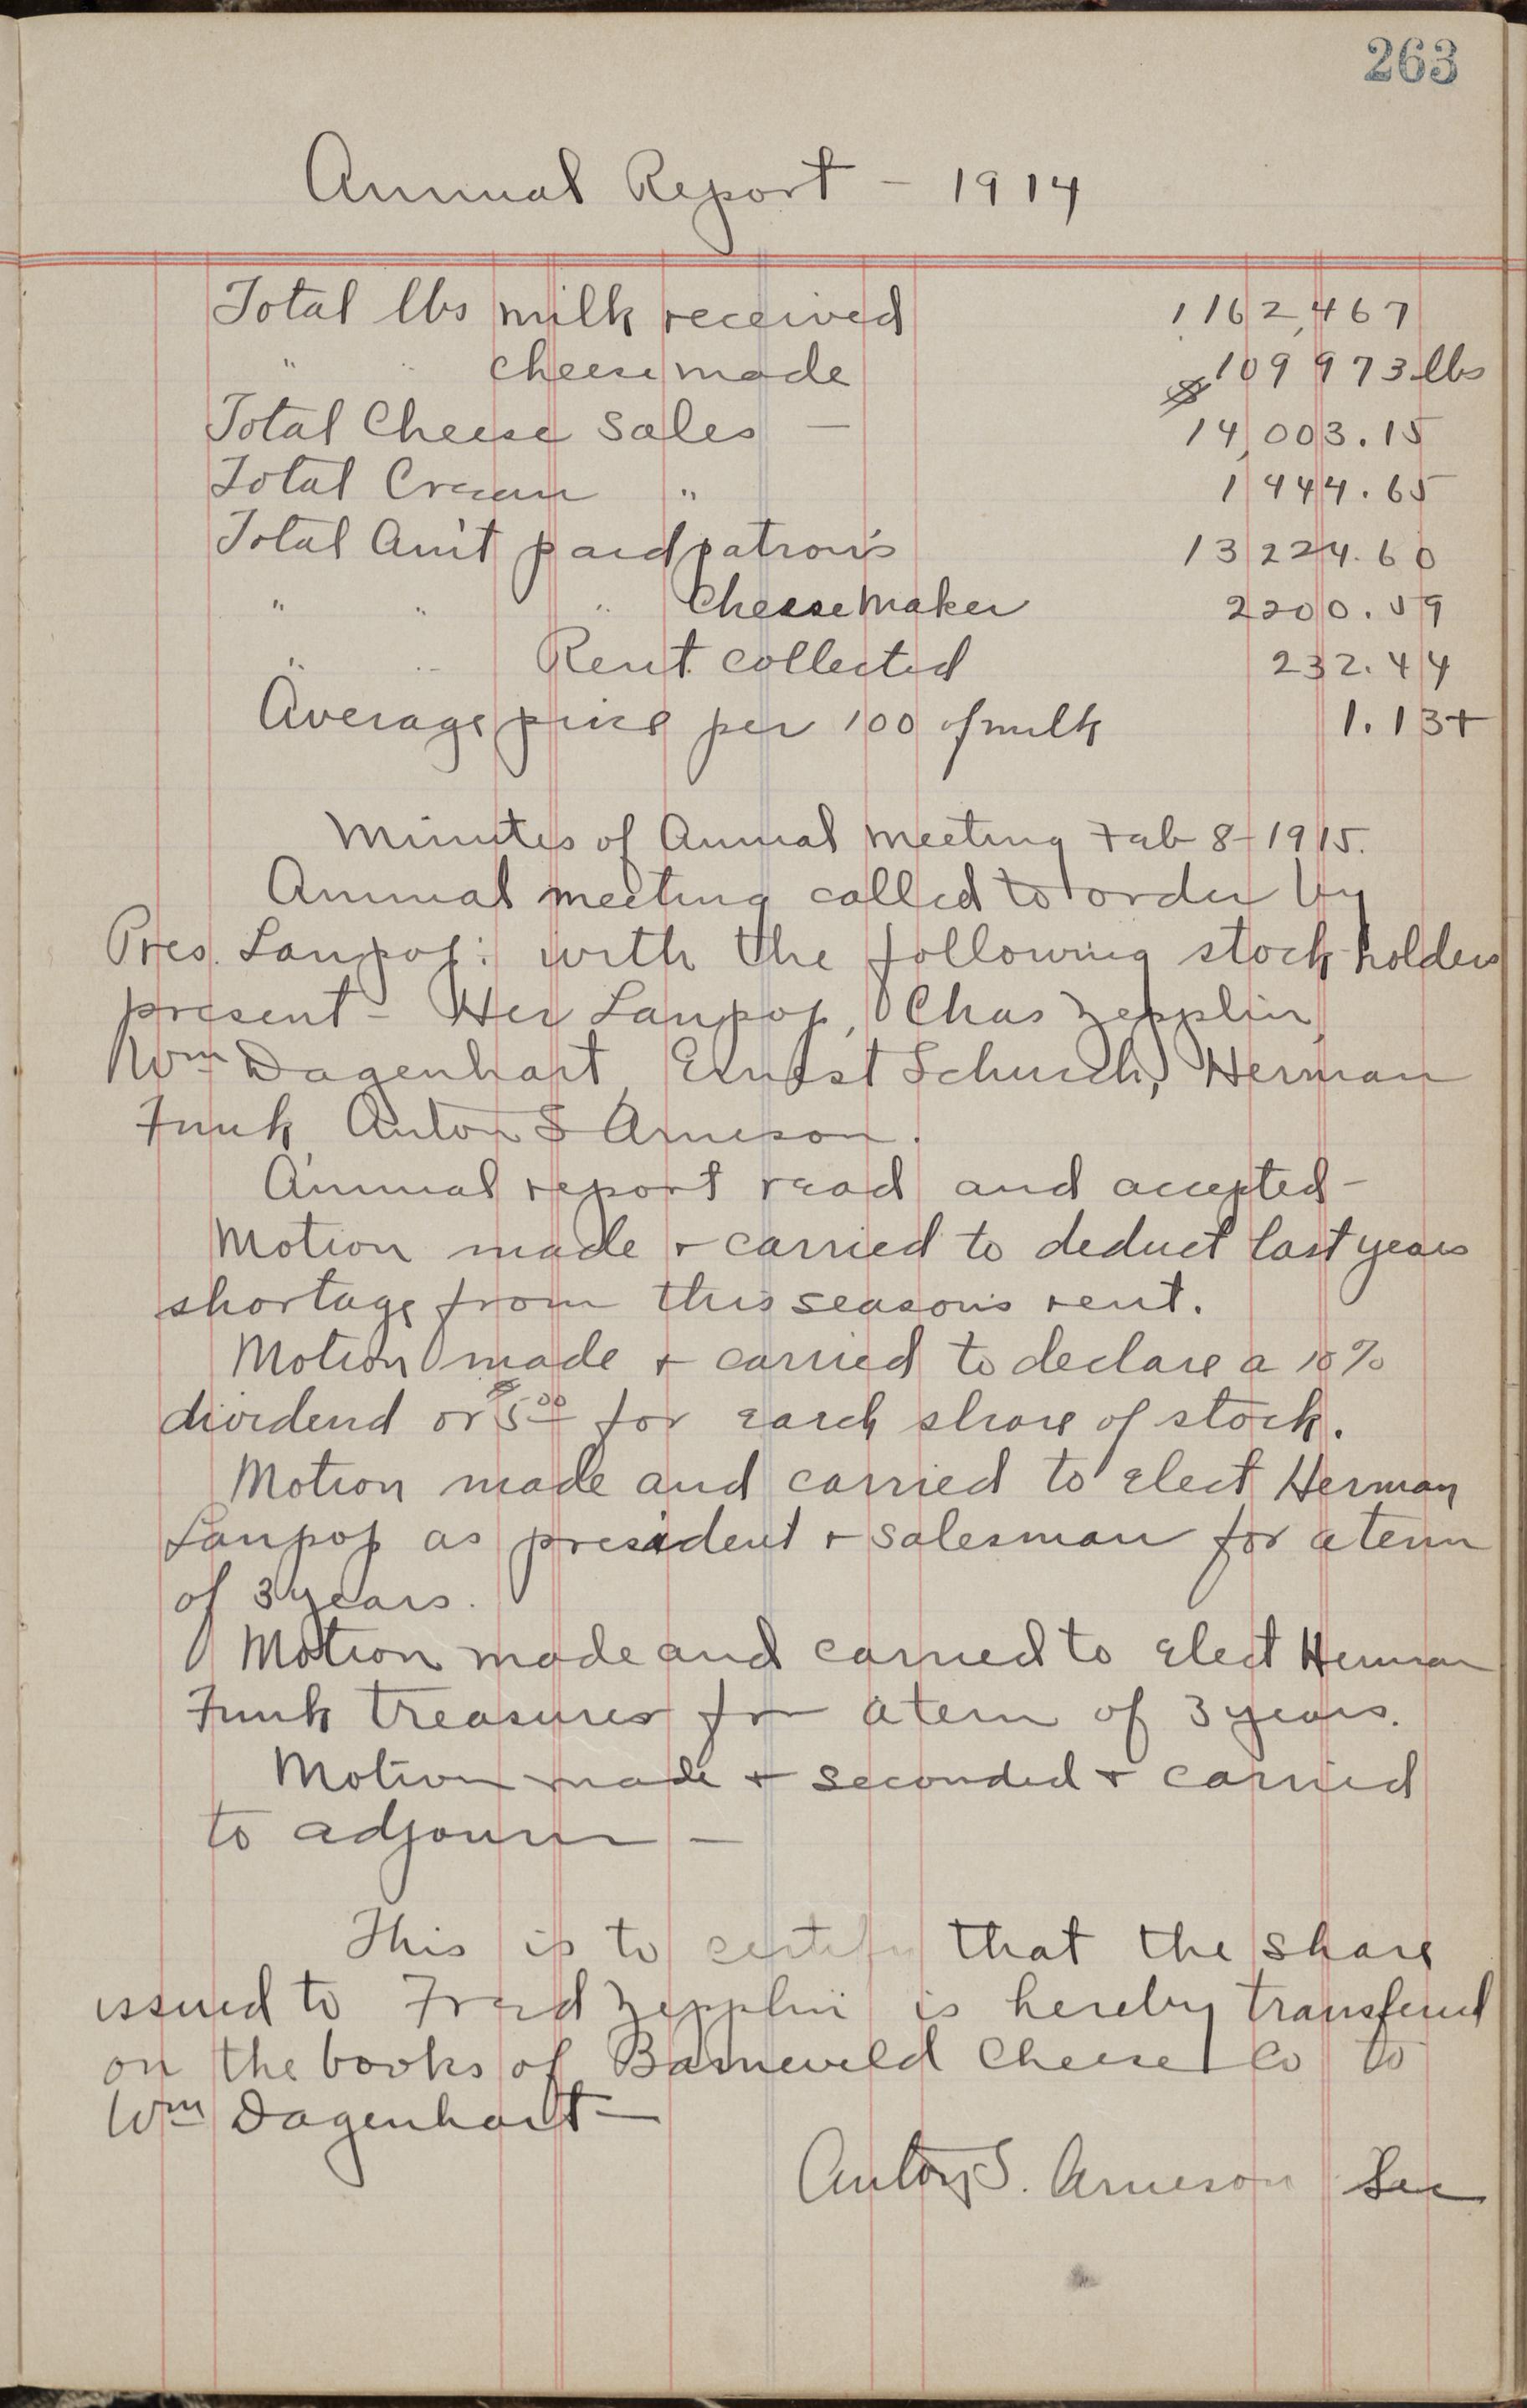 263
Annual Report - 1914
Total lbs milk received 1,162,467
" " cheese made 109 973 lbs
Total Cheese Sales - $14,003.15
Total Cream " 1444.65
Total Am't paid patron's 13224.60
" " " Cheese Maker 2200.59
" " Rent collected 232.44
Average price per 100 of milk 1.13+
Minutes of Annual Meeting Feb 8-1915.
Annual meeting called to order by
Pres. Lanpop: with the following stock-holders
present - Her Lanpop, Chas Zepplin,
Wm Dagenhart, Ernest Schurch, Herman
Funk, Anton S Arneson.
Annual report read and accepted -
Motion made + carried to deduct last years
shortage from this season's rent.
Motion made + carried to declare a 10%
dividend or $5.00 for each share of stock.
Motion made and carried to elect Herman
Lanpop as president + salesman for a term
of 3 years.
Motion made and carried to elect Herman
Funk treasurer for a term of 3 years.
Motion made + seconded + carried
to adjourn -
This is to certify that the share
issued to Fred Zepplin is hereby transfered
on the books of Barneveld Cheese Co to
Wm Dagenhart -
Anton S. Arneson Sec